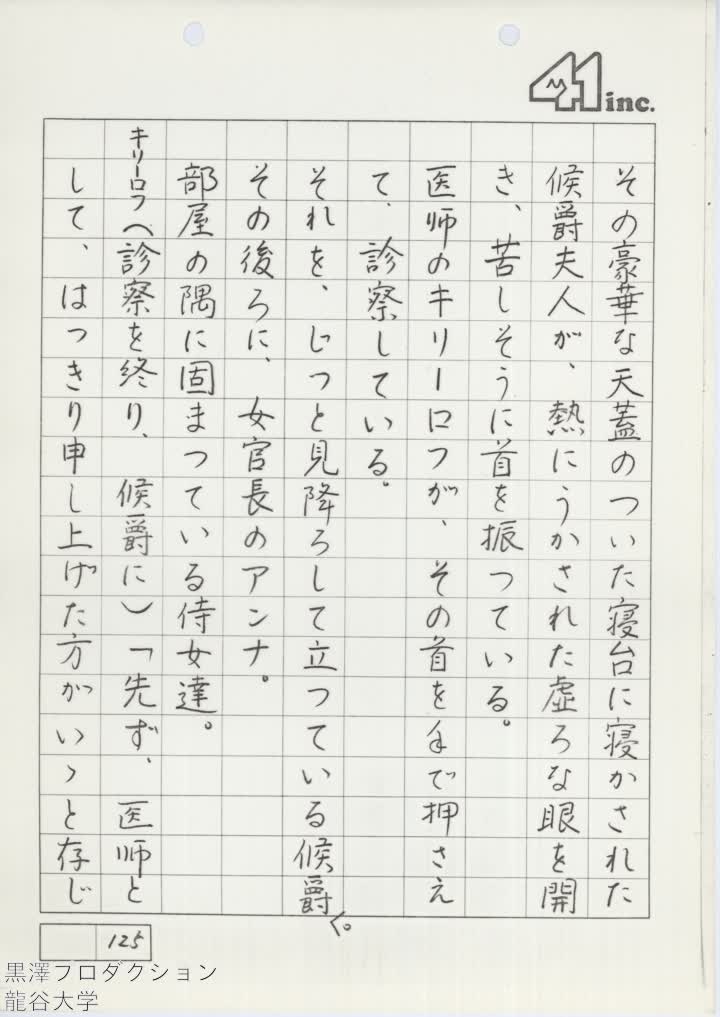 41 inc.
その豪華な天蓋のついた寝台に寝かされた
候爵夫人が、熱にうかされた虚ろな眼を開
き、苦しそうに首を振つている。
医師のキリーロフが、その首を手で押さえ
て、診察している。
それを、じつと見降ろして立つている候爵。
その後ろに、女官長のアンナ。
部屋の隅に固まつている侍女達。
キリーロフ(診察を終り、候爵に)「先ず、医師と
して、はつきり申し上げた方がいゝと存じ
125
黒澤プロダクション
龍谷大学